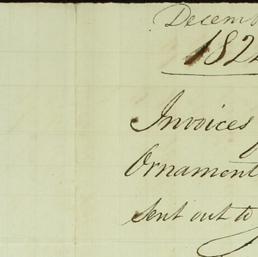 Decem
182
Invoices
Ornament
sent out to